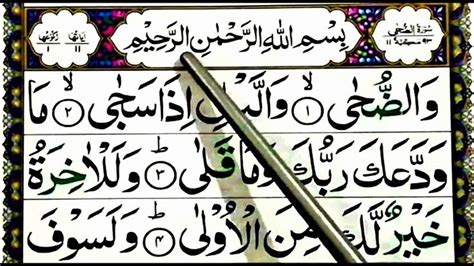 سُوْرَةُ الضُّحٰى
بِسْمِ اللّٰهِ الرَّحْمٰنِ الرَّحِيْمِ
وَالضُّحٰى ۙ﴿١﴾ وَالَّيْلِ اِذَا سَجٰى ۙ﴿٢﴾ مَا
وَدَّعَكَ رَبُّكَ وَمَا قَلٰى ؕ﴿٣﴾ وَلَلْاٰخِرَةُ
خَيْرٌ لَّكَ مِنَ الْاُوْلٰى ؕ﴿٤﴾ وَلَسَوْفَ